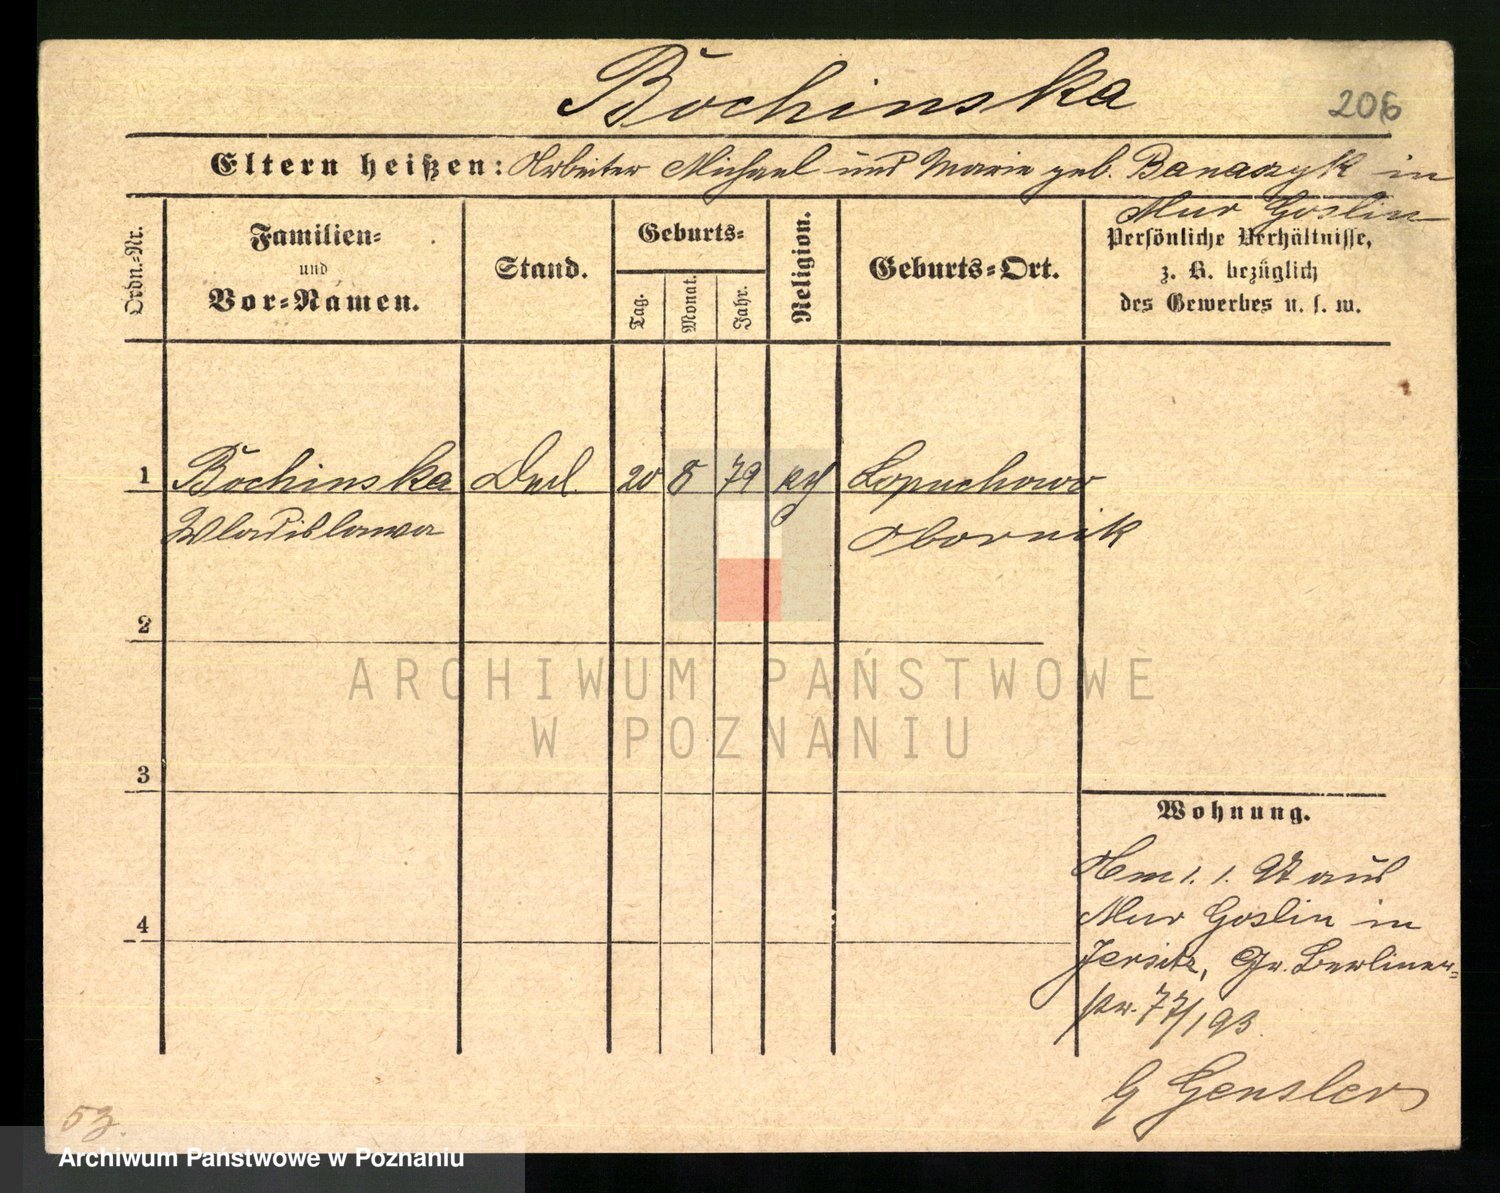 Bochinska
206
Eltern heißen: Arbeiter Michael und Marie geb. Banaszyk in
Mur Goslin
Ordn.-Nr.
Familien-
und
Vor-Namen.
Stand.
Geburts-
Tag.
Monat.
Jahr.
Religion.
Geburts-Ort.
Persönliche Verhältnisse,
z. B. bezüglich
des Gewerbes u. s. w.
1 Bochinska 20 8 79 kth Lopuchowo
Wladislawa Obornik
2
3
4
ARCHIWUM PAŃSTWOWE
W POZNANIU
Wohnung.
1. 1. aus
Mur Goslin in
Jersitz, Gr. Berliner-
str. 77/193
b Gensler
53.
Archiwum Państwowe w Poznaniu